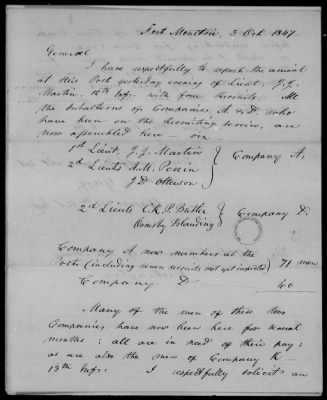 Fort Moultrie, 3 Oct 1847.
General
I have respectfully to report the arrival
at this Post yesterday evening of Lieut. J. J.
Martin, 12th Infy. with four recruits. All
the Subalterns of Companies A & D, who
have been on the recruiting service, are
now assembled here — viz
1st Lieut. J. J. Martin
2d Lieuts A. M.
J. D.
Company A,
2d Lieuts C. R. P. Butler
Ormsby Blanding
Company D.
Company A now numbers at the
Post (including seven recruits not yet inspected) 71 men
Company D 60
Many of the men of these two
Companies have now been here for several
months: all are in need of their pay:
as are also the men of Company K —
13th Infy. I respectfully solicit an